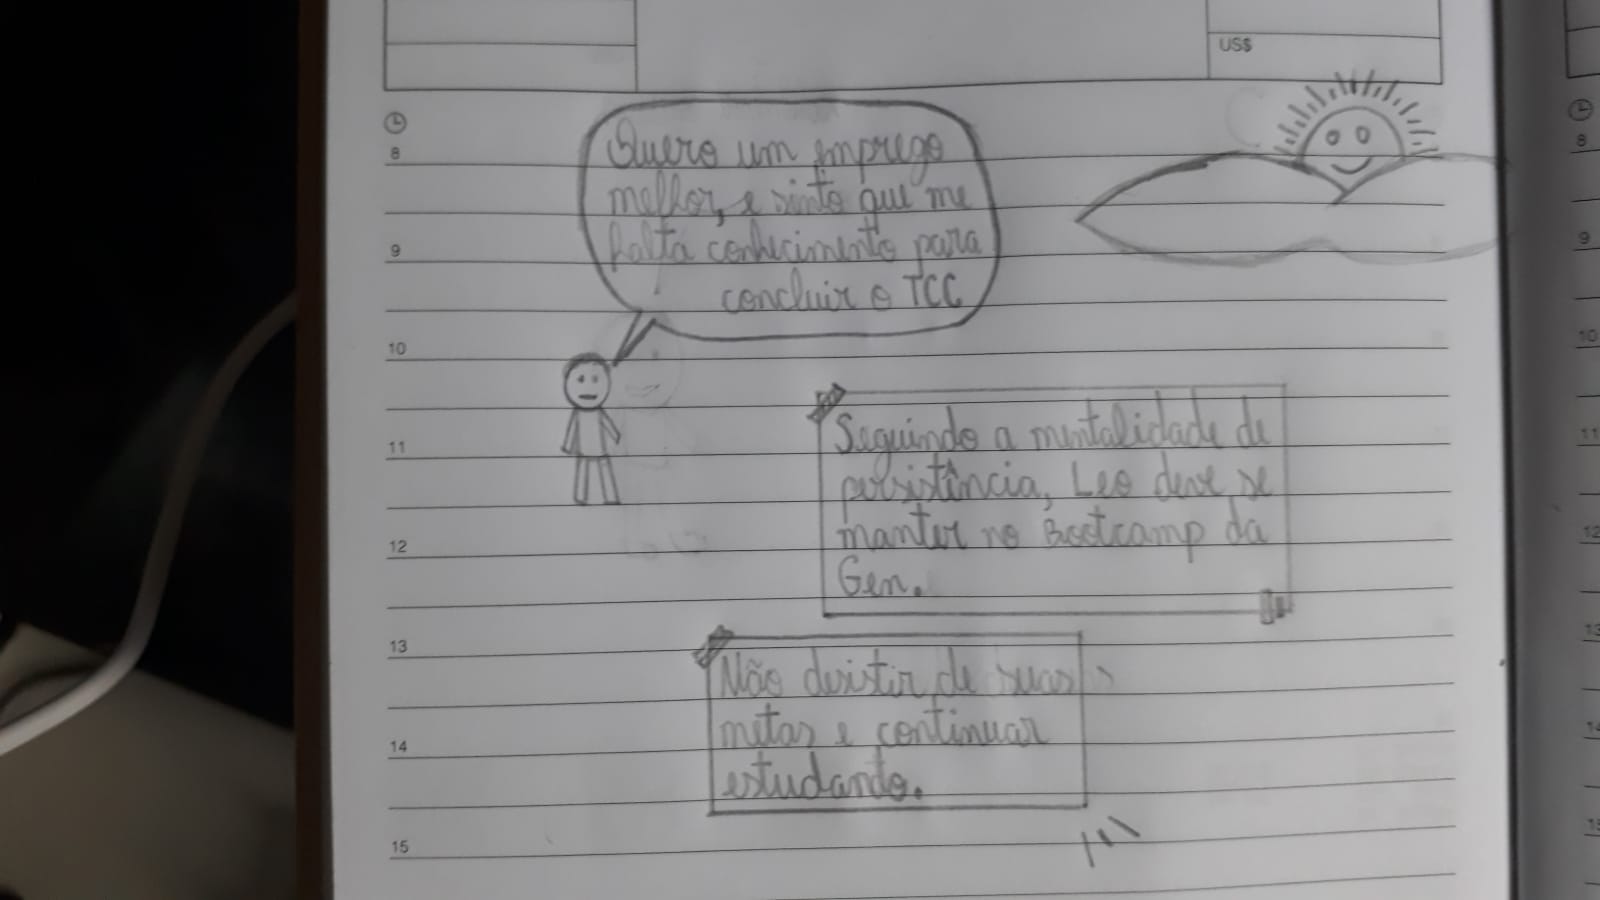 US$
Quero um emprego
melhor, e sinto que me
falta conhecimento para
concluir o TCC
Seguindo a mentalidade de
persistência, Leo deve se
manter no Bootcamp da
Gen.
Não desistir de suas
metas e continuar
estudando.
8
9
10
11
12
13
14
15
8
9
10
11
12
13
14
15